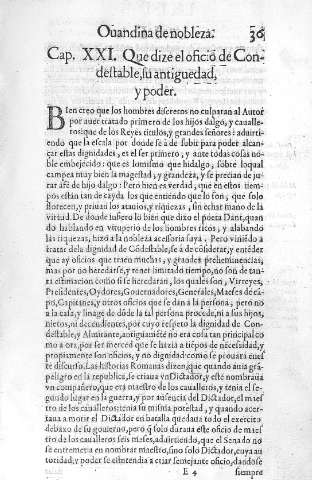 Ouandina de nobleza. 36
Cap. XXI. Que dize el oficio de Con-
destable, su antiguedad,
y poder.
BIen creo que los hombres discretos no culparan al Autor
por auer tratado primero de los hijos dalgo, y cauallē
que de los Reyes titulos, y grandes señores: aduirti-
endo que la escala por donde se à de subir para poder alcan-
çar estas dignidades, es el ser primero, y ante todas cosas no
ble embejecido: que es lo mismo que hidalgo, sobre loqual
campea muy bien la magestad, y grandeza, y se precian de ju
rar àfè de hijo dalgo: Pero bien es verdad, que en estos tiem-
pos están tan de cayda los que entiendo que lo son, que solo
florecen, y priuan los atauios, y riquezas, sin echar mano de la
virtud. De donde infiero lo bien que dixo el poeta Dante, quan
do hablando en vituperio de los hombres ricos, y alabando
las riquezas, hizo à la nobleza acessoria suya. Pero viniēdo à
tratar dela dignidad de Cōdestable, se à de cōsiderar, y entēder
que ay oficios que traen muchas, y grandes prehemimencias,
mas por no heredarse, y tener limitado tiempo, no son de tan-
ta estimacion como si se heredaran, los quales son, Virreyes,
Presidentes, Oydores, Gouernadores, Generales, Maeses de cā-
po, Capitanes, y otros oficios que se dan a la persona; pero no
a la casa, y linage de dōde la tal persona procede, ni a sus hijos,
nietos, ni decendientes, por cuyo respecto la dignidad de Con-
destable, y Almirante, antiguamēte no era cosa tan principal co
mo a ora, por ser merced que se hazia a tiēpos de necesidad, y
propiamente son oficios, y no dignidad como se prouara en es
te discurso. Las historias Romanas dizen, que quando auia grā
peligro en la republica, se criaua vn Dictador, y este nombraua
vn compañero, que era maestro de los caualleros, y tenia el se-
gundo lugar en la guerra, y por ausencia del Dictador, el maes-
tro de los caualleros tenia su misma potestad, y quando acer-
taua a morir el Dictador en batalla quedaua todo el exercito
debaxo de su gouierno, pero q̃ solo duraua este oficio de maes
tro de los caualleros seis meses, aduirtiendo, que el Senado no
se entremetia en nombrar maestro, sino solo Dictador, cuya au
toridad, y poder se estendia a criar semejante oficio, dandose
E 4 siempre